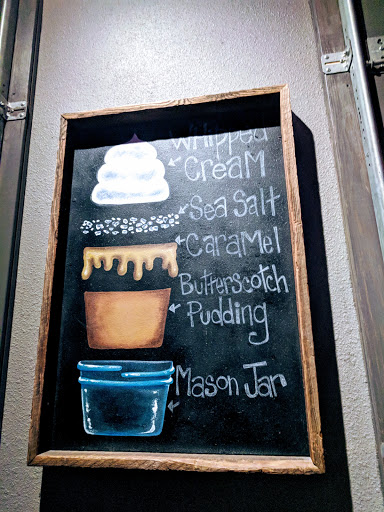 Whipped
Cream
Sea Salt
Caramel
Butterscotch
Pudding
Mason Jar